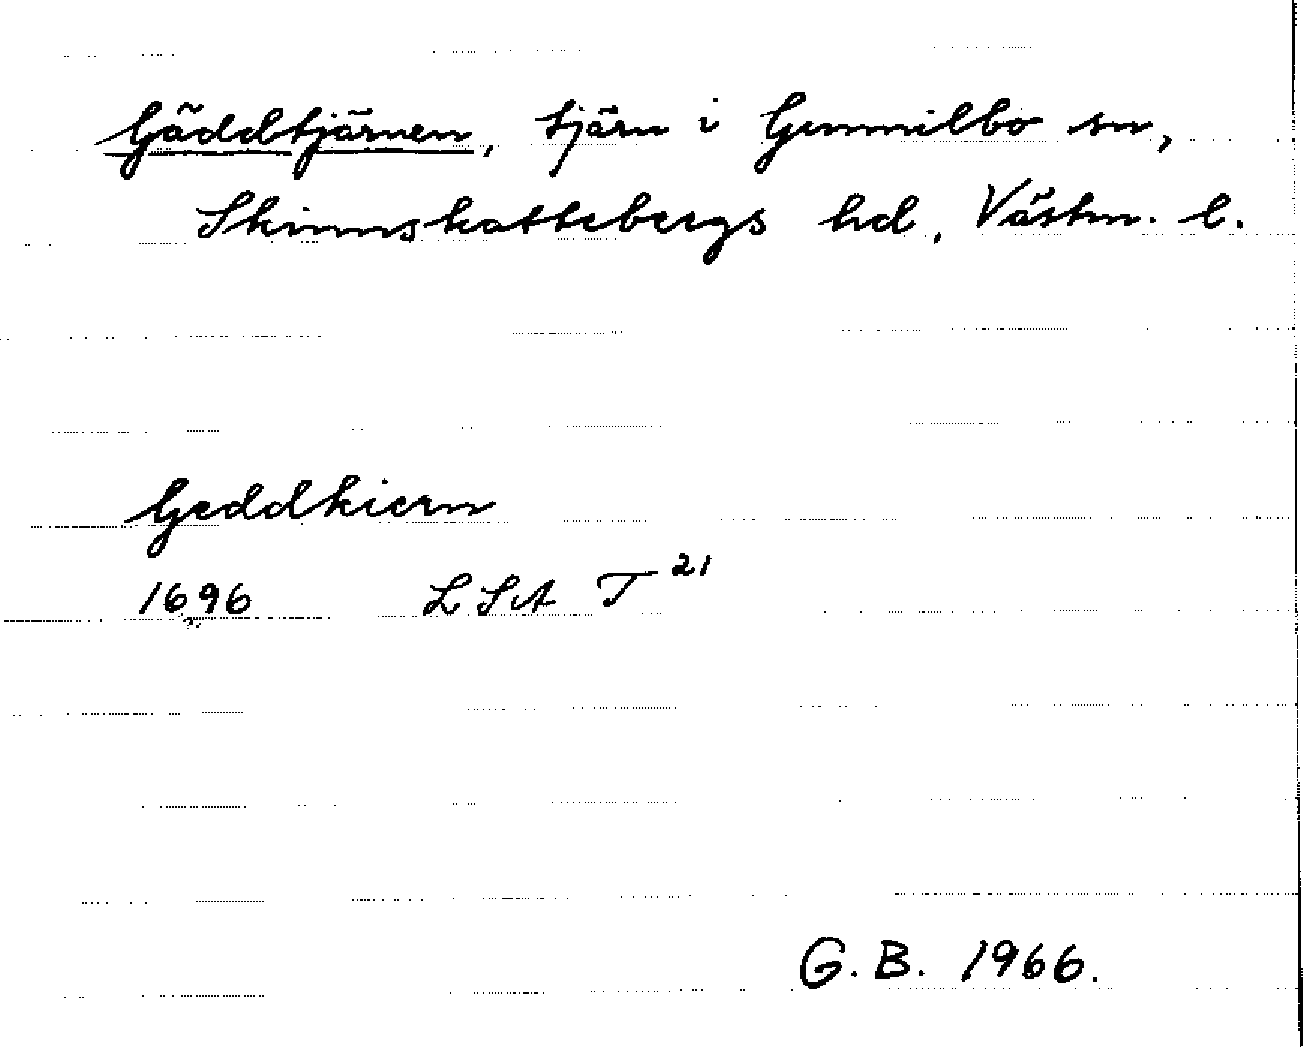 Gäddtjärnen, tjärn i Gunnilbo sn,
Skinnskattebergs hd, Västm. l.
Geddkiern
1696 LSA T 21
G.B. 1966.